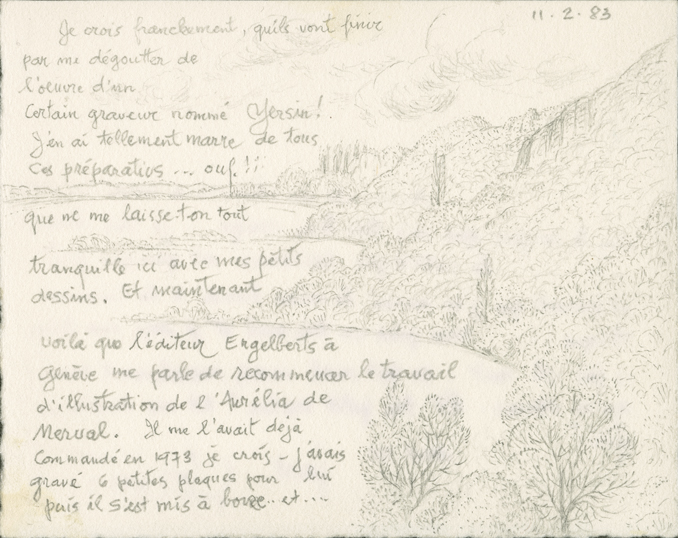 11.2.83
Je crois franckement, qu'ils vont finir
par me dégoutter de
l'oeuvre d'un
Certain graveur nommé Yersin!.
J'en ai tellement marre de tous
ces préparatifs ... ouf!!!
que ne me laisse-t-on tout
tranquille ici avec mes petits
dessins. Et maintenant
voilà que l'éditeur Engelberts à
Genève me parle de recommencer le travail
d'illustration de l'Aurélia de
Nerval. Il me l'avait déjà
Commandé en 1973 je crois - j'avais
gravé 6 petites plaques pour lui
puis il s'est mis à boire.. et ...